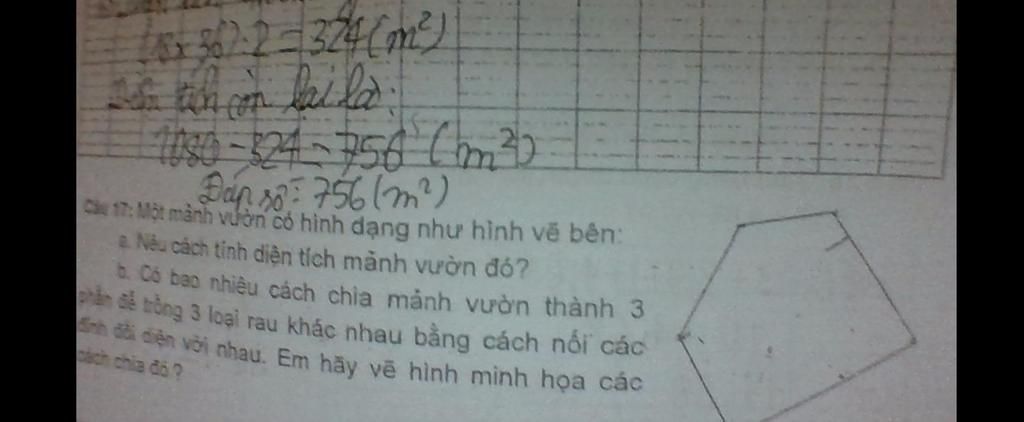 (18 x 36) : 2 = 324 (m²)
Diện tích còn lại là:
1080 - 324 = 756 (m²)
Đáp số: 756 (m²)
Câu 17: Một mảnh vườn có hình dạng như hình vẽ bên:
a. Nêu cách tính diện tích mảnh vườn đó?
b. Có bao nhiêu cách chia mảnh vườn thành 3
phần để trồng 3 loại rau khác nhau bằng cách nối các
đỉnh đối diện với nhau. Em hãy vẽ hình minh họa các
cách chia đó?